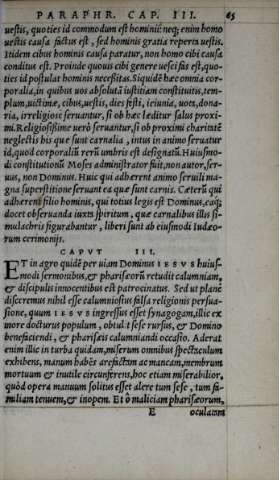 PARAPHR. CAP. III. 65
uestis, quoties id commodum est hominũ: neq; enim homo
uestis causa factus est, sed hominis gratia reperta uestis.
Itidem cibus hominis causa paratur, non homo cibi causa
conditus est. Proinde quouis cibi genere uesci fas est, quo-
ties id postulat hominis necessitas. Siquidẽ hæc omnia cor-
poralia, in quibus uos absolutã iustitiam constituitis, tem-
plum, uictimæ, cibus, uestis, dies festi, ieiunia, uota, dona-
ria, irreligiose seruantur, si ob hæc læditur salus proxi-
mi. Religiosissime uerò seruantur, si ob proximi charitatẽ
neglectis his quæ sunt carnalia, intus in animo seruatur
id, quod corporaliũ rerũ umbris est designatũ. Huiusmo-
di constitutionũ Moses administrator fuit, non autor, ser-
uus, non Dominus. Huic qui adhærent animo seruili ma-
gna superstitione seruant ea quæ sunt carnis. Cæterũ qui
adhærent filio hominis, qui totius legis est Dominus, eaq́;
docet obseruanda iuxta spiritum, quæ carnalibus illis si-
mulachris figurabantur, liberi sunt ab eiusmodi Iudæo-
rum cerimonijs.
CAPVT III.
ET in agro quidẽ per uiam Dominus IESVS huius-
modi sermonibus, & pharisæorũ retudit calumniam,
& discipulis innocentibus est patrocinatus. Sed ut planè
disceremus nihil esse calumniosius falsa religionis persua-
sione, quum IESVS ingressus esset synagogam, illic ex
more docturus populum, obtulit sese rursus, & Domino
benefaciendi, & pharisæis calumniandi occasio. Aderat
enim illic in turba quidam, miserum omnibus spectaculum
exhibens, manum habẽs arefactam ac mancam, membrum
mortuum & inutile circunferens, hoc etiam miserabilior,
quòd opera manuum solitus esset alere tum sese, tum fa-
miliam tenuem, & inopem. Et ô maliciam pharisæorum,
E oculatum